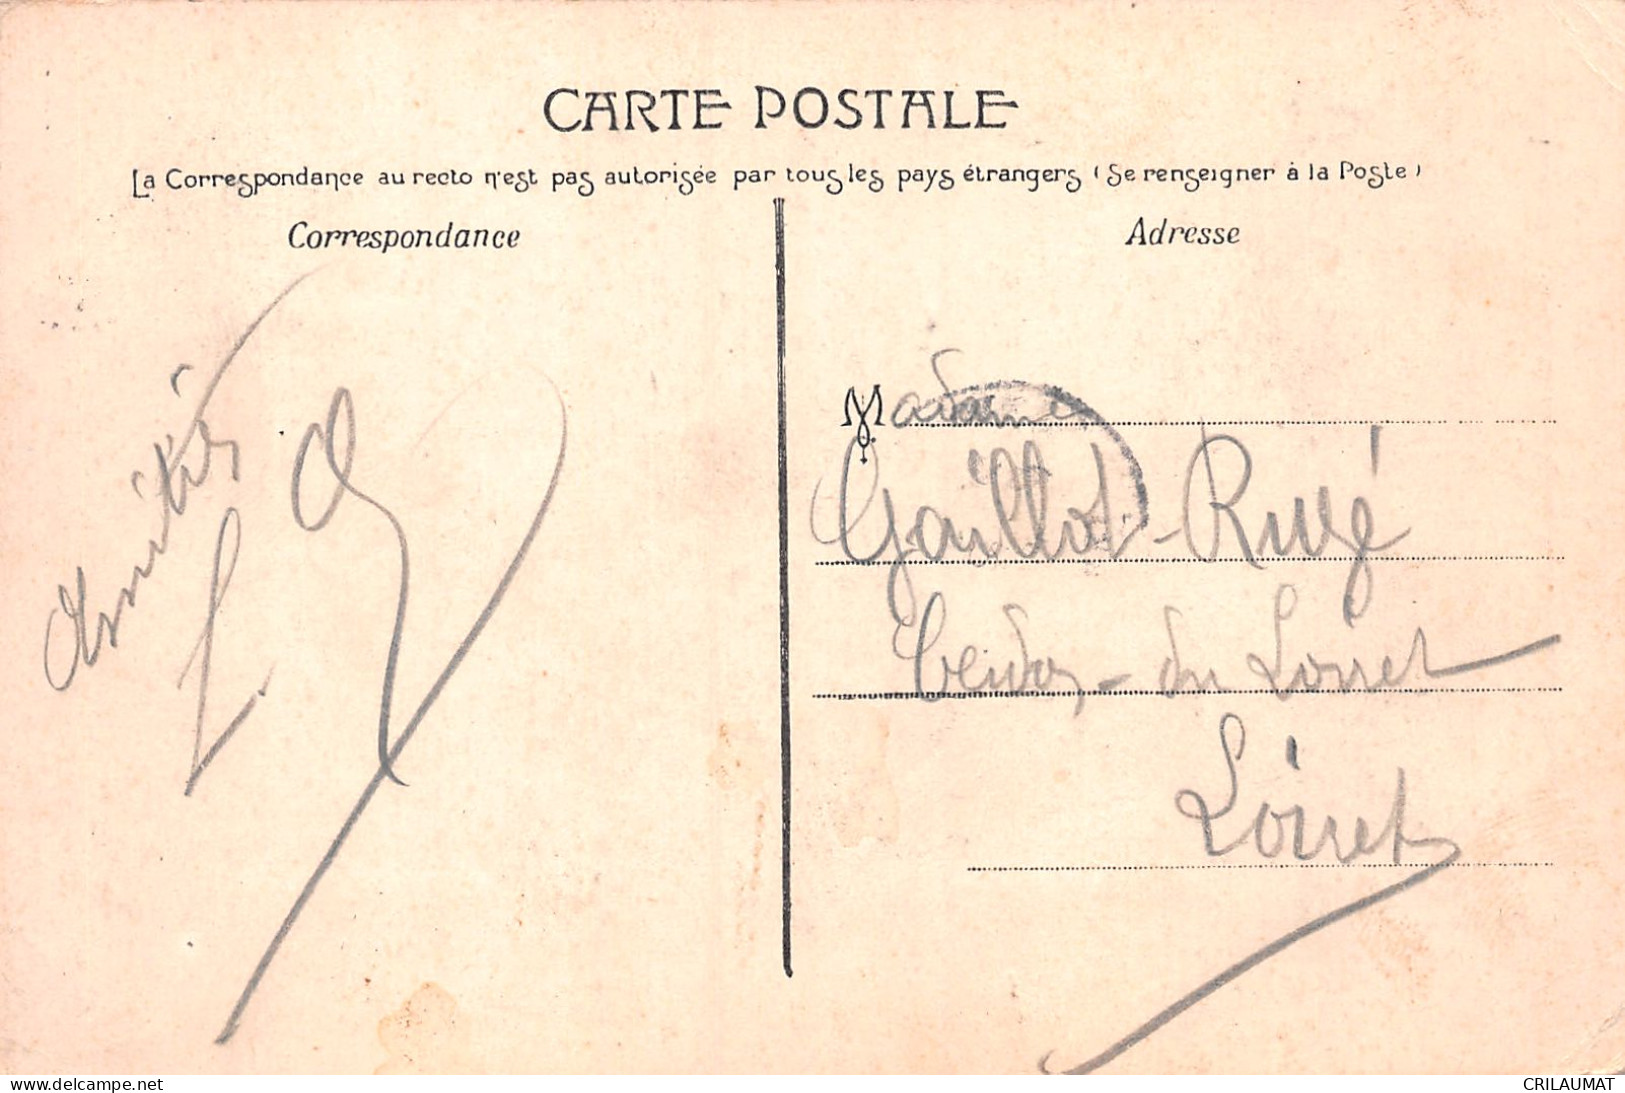 CARTE POSTALE
La Correspondance au recto n'est pas autorisée par tous les pays étrangers (Se renseigner à la Poste)
Correspondance
Adresse
Amitiés
L
Madame
Gaillot-Rugé
du Loiret
Loiret
CRILAUMAT